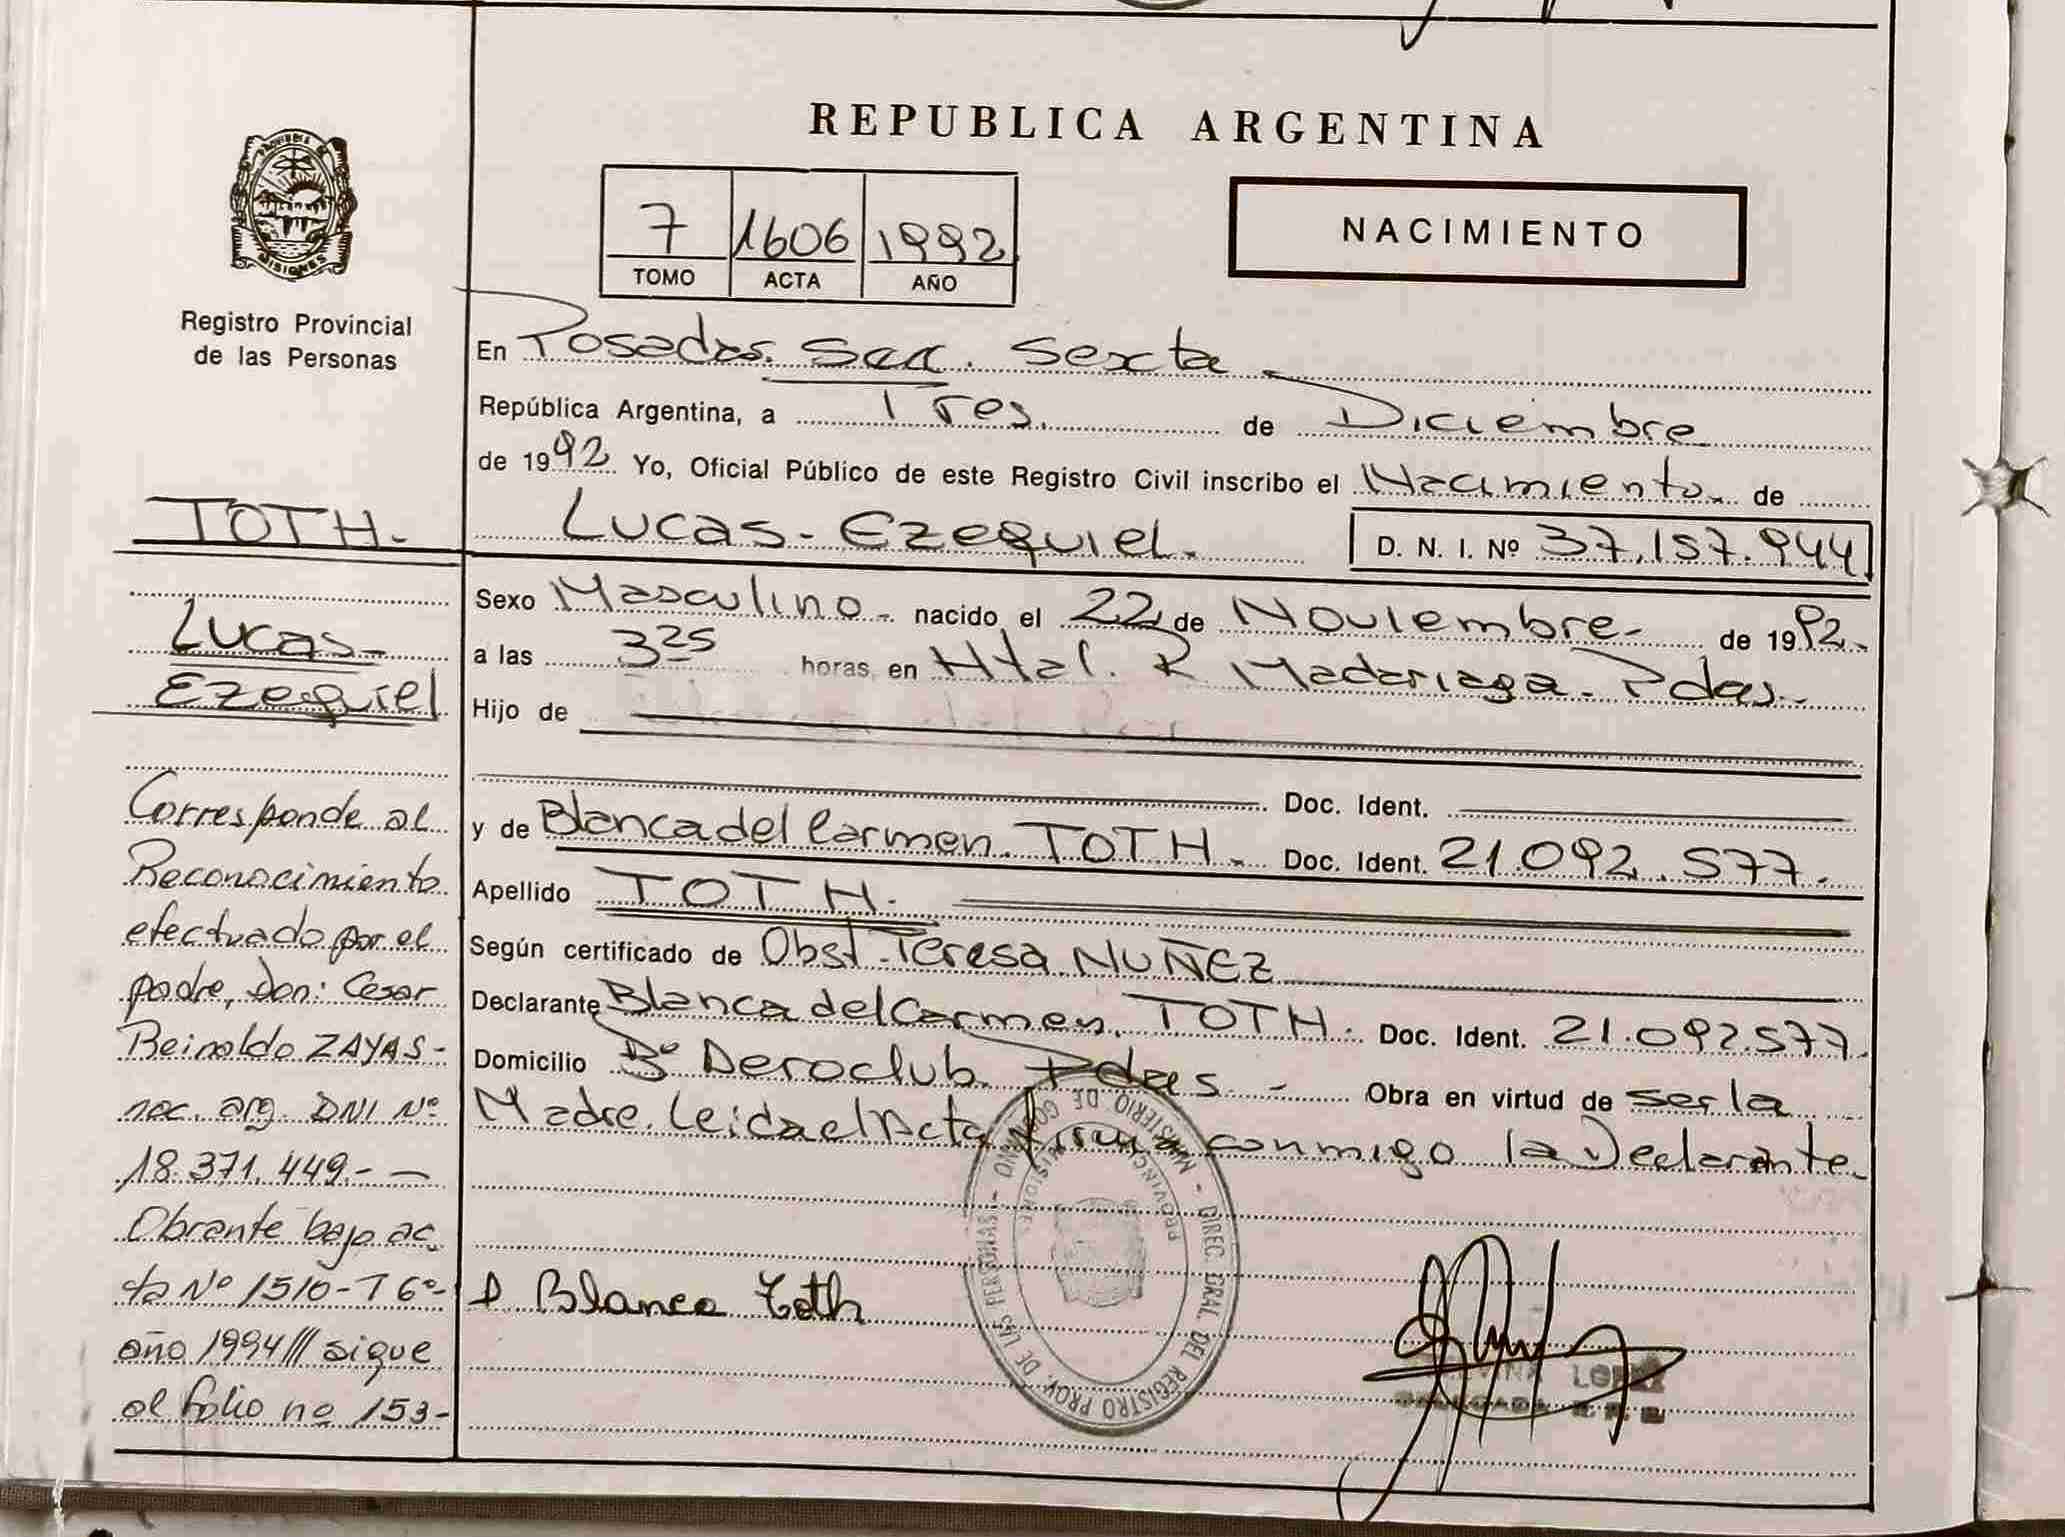 REPUBLICA ARGENTINA
7 1606 1992
TOMO ACTA AÑO
NACIMIENTO
MISIONES
Registro Provincial
de las Personas
En Posadas. Secc. Sexta
República Argentina, a Tres. de Diciembre
de 1992 Yo, Oficial Público de este Registro Civil inscribo el Nacimiento. de
Lucas - Ezequiel. D. N. I. Nº 37.157.944
Sexo Masculino - nacido el 22 de Noviembre - de 1992.
a las 3 25 horas, en Htal. R. Madariaga. Pdas -
Hijo de
Doc. Ident.
y de Blanca del Carmen. TOTH. Doc. Ident. 21.092.577.
Apellido TOTH.
Según certificado de Obst. Teresa NUÑEZ
Declarante Blanca del Carmen. TOTH. Doc. Ident. 21.092.577.
Domicilio Bº Aeroclub. Pdas - Obra en virtud de ser la
Madre. Leida el Acta firma conmigo la Declarante.
Blanca Toth
MINISTERIO DE GOBIERNO - DIREC. GRAL. DEL REGISTRO PROV. DE LAS PERSONAS -
PROVINCIA MISIONES
LOPEZ
TOTH.
Lucas -
Ezequiel
Corresponde al
Reconocimiento
efectuado por el
padre, Don: Cesar
Reinaldo ZAYAS -
nac. arg. DNI Nº
18.371.449. -
Obrante bajo ac-
ta Nº 1510 - T 6º -
año 1994 /// sigue
al folio nº 153 -